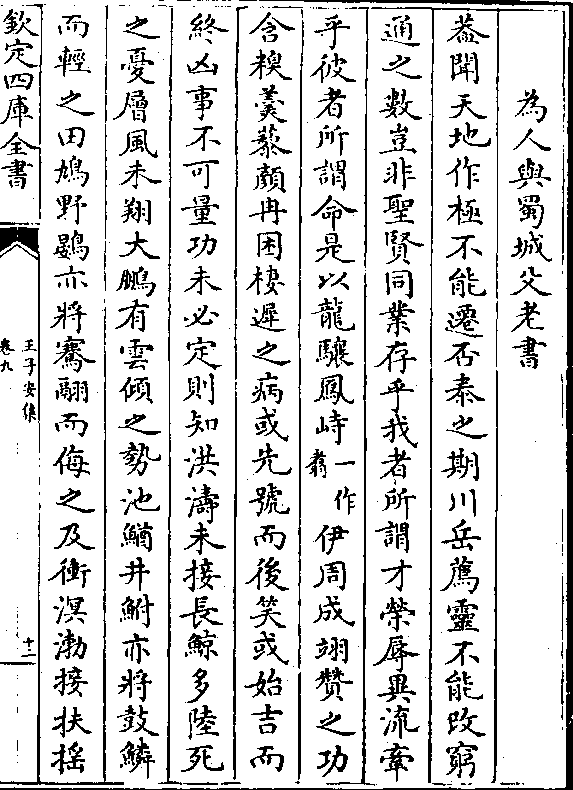 為人與蜀城父老書
葢聞天地作極不能遷否泰之期川岳薦靈不能改窮
通之數豈非聖賢同業存乎我者所謂才榮辱異流牽
乎彼者所謂命是以龍驤鳳峙一作翥伊周成翊贊之功
含糗羮藜顔冉困棲遲之病或先號而後笑或始吉而
終凶事不可量功未必定則知洪濤未接長鯨多陸死
之憂層風未翔大鵬有雲傾之勢池鰌井鮒亦將鼓鱗
而輕之田鳩野鷃亦將騫翮而侮之及衝溟渤接扶揺
欽定四庫全書
王子安集
卷九
十二